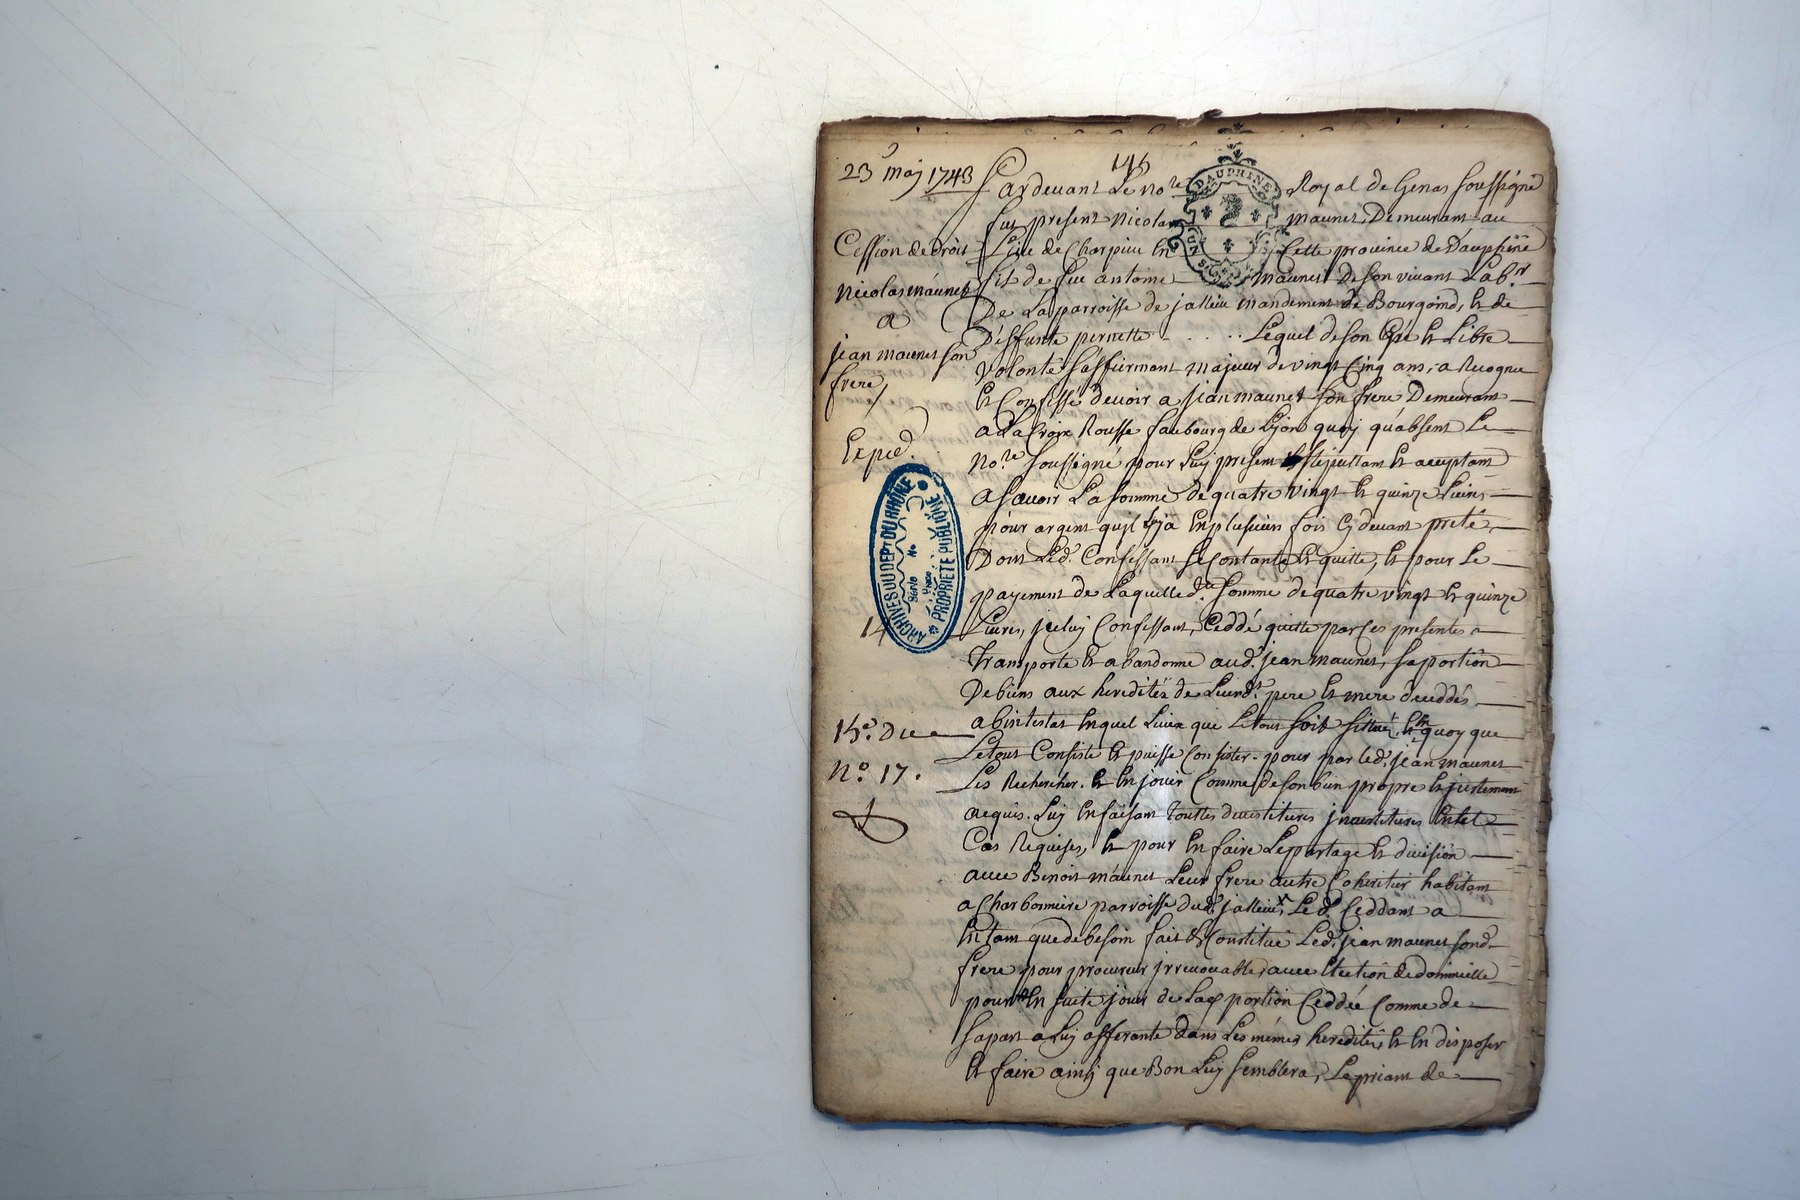 146
23 may 1743
Cession de droit
Nicolas maünet
a
jean maunet son
frere
Exped.
ARCHIVES DU DEPT DU RHÔNE
PROPRIÉTÉ PUBLIQUE
14
15e. Due
N.o 17.
DAUPHINE
Pardevant Le No.re Royal de Genas soussigné
fut present Nicolas maunet, Demeurant au
Lieu de Charpieu En Cette province de Dauphiné
fils de feu antoine maunet De son vivant Lab.r
De La parroisse de jallieu mandement de Bourgoind, Et de
Deffunte pernette . . . . . Lequel de son gré Et Libre
volonté s'affirmant majeur de vingt Cinq ans, a Recognu
Et Confessé devoir a jean maunet son frere Demeurant
a La Croix Rousse faubourg de Lyon quoy qu'absent Le
No.re soussigné pour Luy present stipullant Et acceptant
a sçavoir La somme de quatre vingt Et quinze Livres
pour argent qu'il En plusieurs fois Cy devant preté,
Dont Led. Confessant se Contante Et quitte, Et pour Le
payement de Laquelle d.te somme de quatre vingt Et quinze
Livres, jceluy Confessant, Cedde quitte par Ces presentes
Transporte Et abandonne aud. jean maunet, sa portion
De biens aux heredités de Leurd.s pere Et mere deceddés
abintestat En quel Lieux que Letout soit sittué, Et En quoy que
Letout Consiste Et puisse Consister. pour par Led. jean maunet
Les Rechercher. Et En jouir Comme de son bien propre Et justement
acquis. Luy En faisant Touttes devestitures jnvestitures En tel
Cas Requises, Et pour En faire Le partage Et division
avec Benoit maunet Leur frere autre Coheritier habitant
a Charbonniere parroisse dud. jallieu, Led. Ceddant a
En tant que de besoin fait Et Constitué Led. jean maunet sond.
frere pour procureur jrrevocable, avec Election de domicille
pour En suite jouir de La portion Ceddée Comme de
sa part a Luy afferante dans Les mémes heredités, Et En disposer
Et faire ainsy que Bon Luy semblera, Le priant de